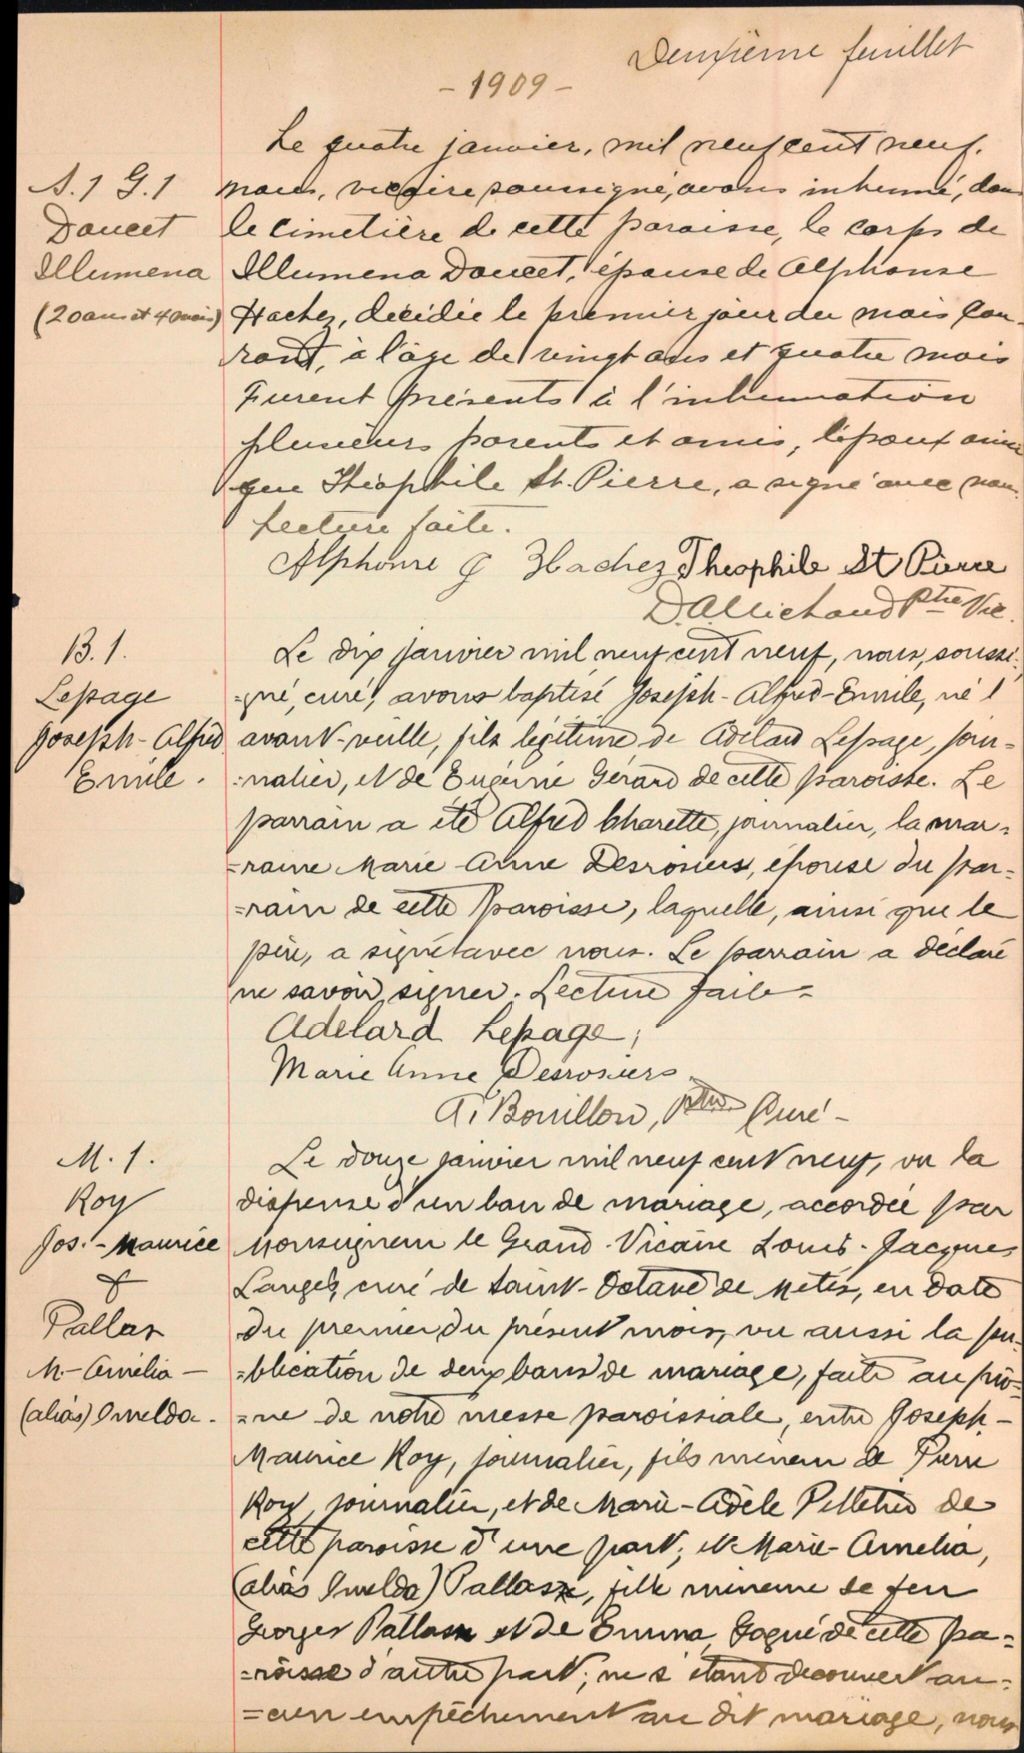 Deuxième feuillet
- 1909 -
S. 1 G. 1
Doucet
Illumena
(20 ans et 4 mois)
Le quatre janvier, mil neuf cent neuf,
nous, vicaire soussigné, avons inhumé, dans
le cimetière de cette paroisse, le corps de
Illumena Doucet, épouse de Alphonse
Hachez, décédée le premier jour du mois cou-
rant, à l'âge de vingt ans et quatre mois
Furent présents à l'inhumation
plusieurs parents et amis, l'époux ainsi
que Théophile St. Pierre, a signé avec nous.
Lecture faite.
Alphonse J Hachez Theophile St Pierre
D. A. Michaud Ptre Vic.
B. 1.
Lepage
Joseph-Alfred
Emile.
Le dix janvier mil neuf cent neuf, nous, soussi-
=gné, curé, avons baptisé Joseph-Alfred-Emile, né l'
avant-veille, fils légitime de Adélard Lepage, jour-
=nalier, et de Eugénie Gérard de cette paroisse. Le
parrain a été Alfred Charette, journalier, la mar=
=raine Marie Anne Desrosiers, épouse du par=
=rain de cette paroisse, laquelle, ainsi que le
père, a signé avec nous. Le parrain a déclaré
ne savoir signer. Lecture faite=
Adelard Lepage;
Marie Anne Desrosiers
Bouillon, ptre Curé-
M. 1.
Roy
Jos.-Maurice
&
Pallas
M-Amélia-
(aliàs) Imelda.
Le douze janvier mil neuf cent neuf, vu la
dispense d'un ban de mariage, accordée par
Monseigneur le Grand-Vicaire Louis-Jacques
Langis, curé de Saint-Octave de Métis, en date
du premier du présent mois, vu aussi la pu-
=blication de deux bans de mariage, faite au prô=
=ne de notre messe paroissiale, entre Joseph-
Maurice Roy, journalier, fils mineur de Pierre
Roy, journalier, et de Marie-Adèle Pelletier de
cette paroisse d'une part; et Marie-Amelia,
(aliàs Imelda) Pallas, fille mineure de feu
Georges Pallas et de Emma Gagné de cette pa=
=roisse d'autre part; ne s'étant découvert au=
=cun empêchement au dit mariage, nous